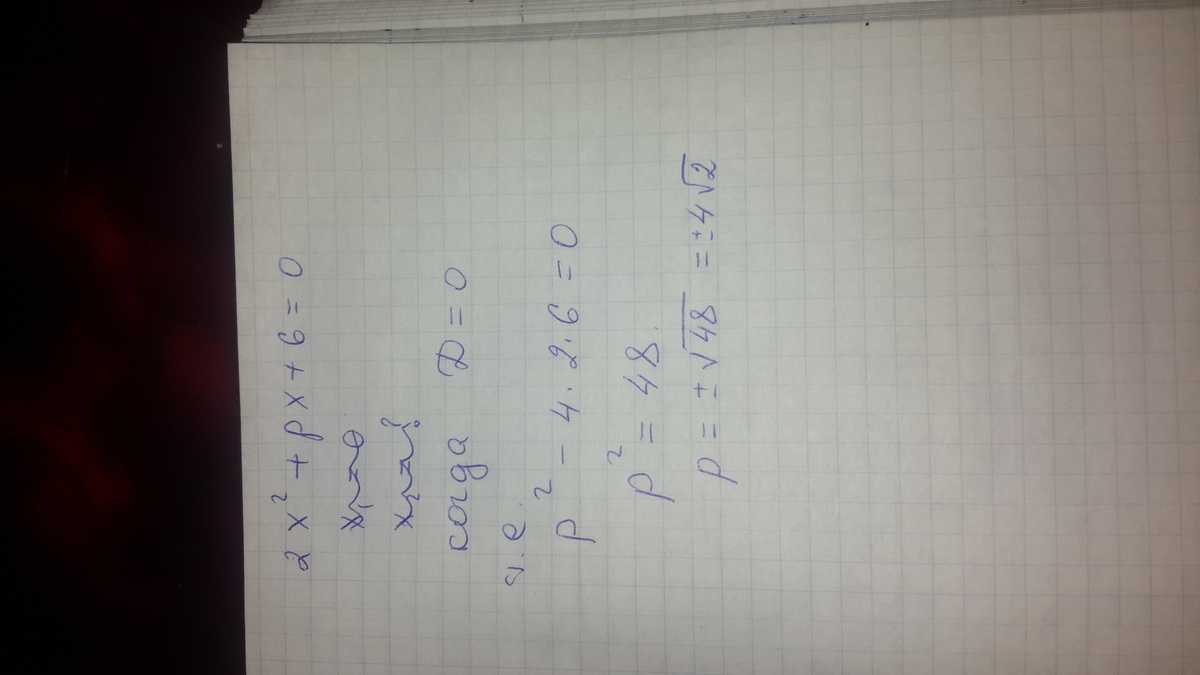 2x² + px + 6 = 0
когда D = 0
т.е.
p² - 4 · 2 · 6 = 0
p² = 48.
p = ± √48 = ± 4√2